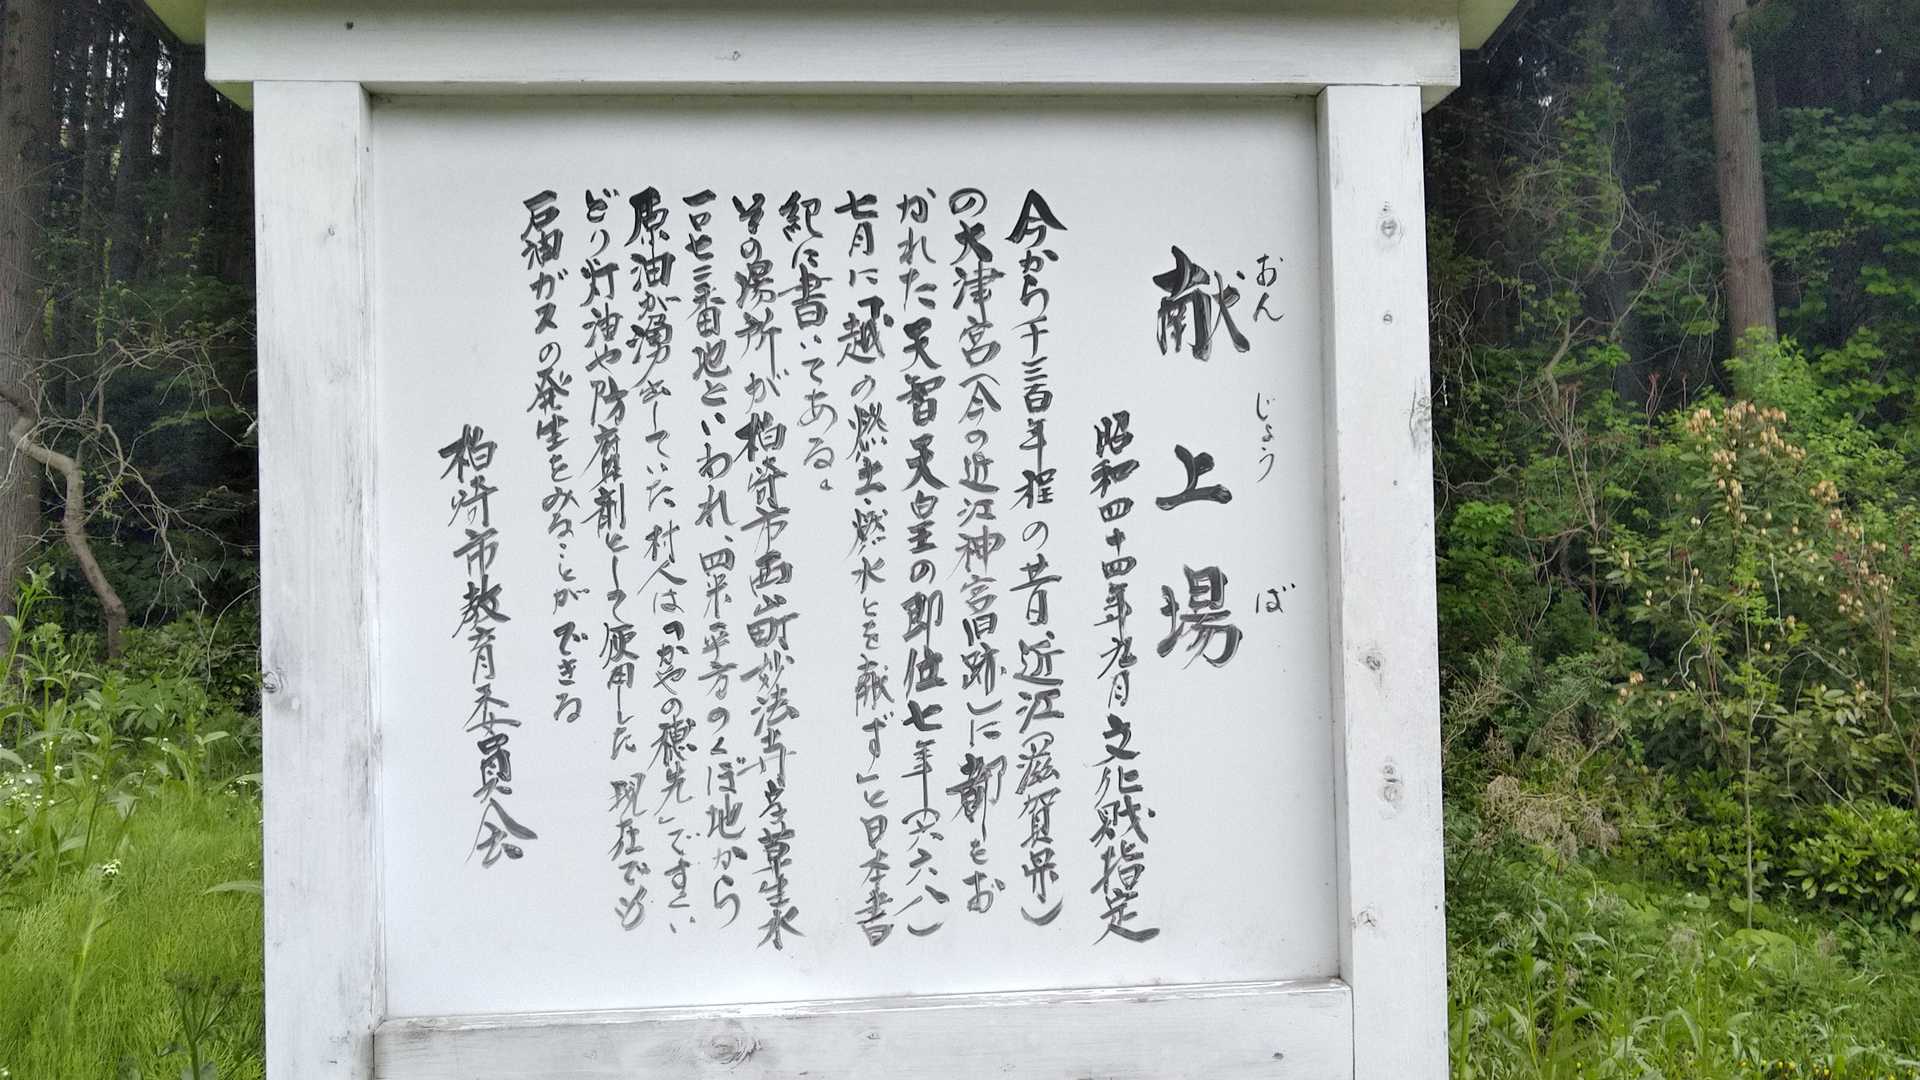 おんじょうば
献上場
昭和四十四年九月文化財指定
今から千三百年程の昔近江(滋賀県)
の大津宮(今の近江神宮旧跡)に都をお
かれた天智天皇の即位七年(六六八)
七月に「越の燃土、燃水とを献ず」と日本書
紀に書いてある。
その場所が柏崎市西山町妙法寺字草生水
一〇七三番地といわれ、四米平方のくぼ地から
原油が湧出していた村人は「かやの穂先」ですくい
どり灯油や防腐剤として使用した現在でも
石油ガスの発生をみることができる
柏崎市教育委員会